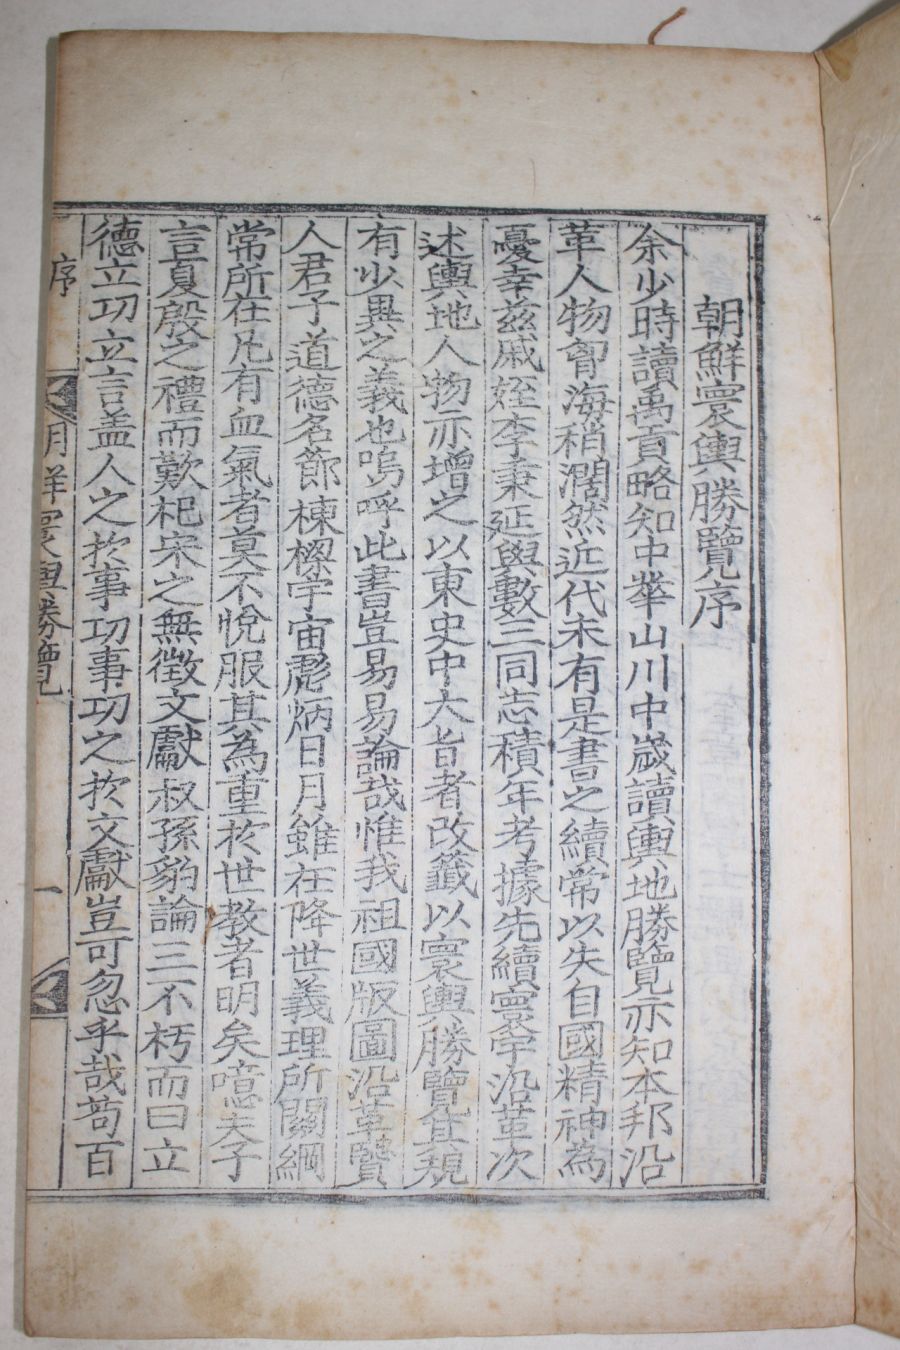 朝鮮寰輿勝覽序
余少時讀禹貢略知中華山川中歲讀輿地勝覽亦知本邦沿
革人物曾海稍濶然近代未有是書之續常以失自國精神為
憂幸茲戚姪李秉延與數三同志積年考據先續寰宇沿革次
述輿地人物亦增之以東史中大旨者改籤以寰輿勝覽宜視
有少異之義也嗚呼此書豈易易論哉惟我祖國版圖沿革賢
人君子道德名節棟樑宇宙彪炳日月雖在降世義理所關綱
常所在凡有血氣者莫不悅服其為重於世教者明矣噫夫子
言夏殷之禮而歎杞宋之無徵文獻叔孫豹論三不朽而曰立
德立功立言盖人之於事功事功之於文獻豈可忽乎哉苟百
序 朝鮮寰輿勝覽 一